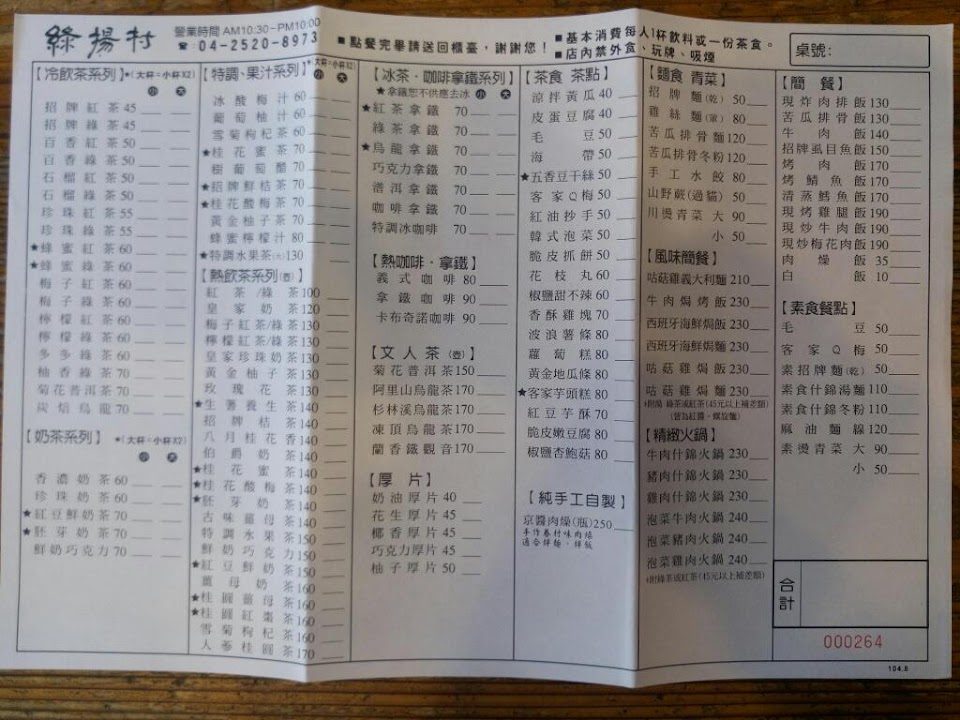 綠揚村
營業時間 AM10:30~PM10:00
☎:04-2520-8973
■點餐完畢請送回櫃臺，謝謝您！
■基本消費每人1杯飲料或一份茶食。
■店內禁外食、玩牌、吸煙
桌號:
【冷飲茶系列】★(大杯=小杯X2)
小 大
招牌紅茶45
招牌綠茶45
百香紅茶50
百香綠茶50
石榴紅茶50
石榴綠茶50
珍珠紅茶55
珍珠綠茶55
★蜂蜜紅茶60
★蜂蜜綠茶60
梅子紅茶60
梅子綠茶60
檸檬紅茶60
檸檬綠茶60
多多綠茶60
柚香綠茶70
菊花普洱茶70
炭焙烏龍70
【奶茶系列】★(大杯=小杯X2)
小 大
香濃奶茶60
珍珠奶茶60
★紅豆鮮奶茶70
★胚芽奶茶70
鮮奶巧克力70
【特調、果汁系列】★(大杯=小杯X2)
小 大
冰酸梅汁60
葡萄柚汁60
雪菊枸杞茶60
★桂花蜜茶70
樹葡萄醋70
★招牌鮮桔茶70
★桂花酸梅茶70
黃金柚子茶70
蜂蜜檸檬汁80
★特調水果茶(大)130
【熱飲茶系列(壺)】
紅茶/綠茶100
皇家奶茶120
梅子紅茶/綠茶130
檸檬紅茶/綠茶130
皇家珍珠奶茶130
黃金柚子茶130
玫瑰花茶130
★生薑養生茶140
招牌桔茶140
八月桂花香140
伯爵奶茶140
★桂花蜜茶140
★桂花酸梅茶140
★胚芽奶茶140
古味薑母茶140
特調水果茶150
鮮奶巧克力150
★紅豆鮮奶茶150
薑母奶茶160
★桂圓薑母茶160
★桂圓紅棗茶160
雪菊枸杞茶160
人蔘桂圓茶170
【冰茶‧咖啡拿鐵系列】
★拿鐵恕不供應去冰 小 大
★紅茶拿鐵 70
綠茶拿鐵 70
★烏龍拿鐵 70
巧克力拿鐵 70
普洱拿鐵 70
咖啡拿鐵 70
特調冰咖啡 70
【熱咖啡‧拿鐵】
義式咖啡80
拿鐵咖啡90
卡布奇諾咖啡90
【文人茶(壺)】
菊花普洱茶150
阿里山烏龍茶170
杉林溪烏龍茶170
凍頂烏龍茶170
蘭香鐵觀音170
【厚片】
奶油厚片40
花生厚片45
椰香厚片45
巧克力厚片45
柚子厚片50
【茶食 茶點】
涼拌黃瓜40
皮蛋豆腐40
毛豆50
海帶50
★五香豆干絲50
客家Q梅50
紅油抄手50
韓式泡菜50
脆皮抓餅50
花枝丸60
椒鹽甜不辣60
香酥雞塊70
波浪薯條80
蘿蔔糕80
黃金地瓜條80
★客家芋頭糕80
紅豆芋酥70
脆皮嫩豆腐80
椒鹽杏鮑菇80
【純手工自製】
京醬肉燥(瓶)250
手作眷村味肉燥
適合拌麵、拌飯
【麵食 青菜】
招牌麵(乾)50
雞絲麵(單)80
苦瓜排骨麵120
苦瓜排骨冬粉120
手工水餃80
山野蕨(過貓)50
川燙青菜 大 90
小 50
【風味簡餐】
咕菇雞義大利麵210
牛肉焗烤飯230
西班牙海鮮焗飯230
西班牙海鮮焗麵230
咕菇雞焗飯230
咕菇雞焗麵230
※附湯 綠茶或紅茶(45元以上補差額)
(皆為紅醬、螺旋麵)
【精緻火鍋】
牛肉什錦火鍋230
豬肉什錦火鍋230
雞肉什錦火鍋230
泡菜牛肉火鍋240
泡菜豬肉火鍋240
泡菜雞肉火鍋240
※附綠茶或紅茶(45元以上補差額)
【簡餐】
現炸肉排飯130
苦瓜排骨飯130
牛肉飯140
招牌虱目魚飯150
烤肉飯170
烤鯖魚飯170
清蒸鱈魚飯170
現烤雞腿飯190
現炒牛肉飯190
現炒梅花肉飯190
肉燥飯35
白飯10
【素食餐點】
毛豆50
客家Q梅50
素招牌麵(乾)50
素食什錦湯麵110
素食什錦冬粉110
麻油麵線120
素燙青菜 大 90
小 50
合計
000264
104.8